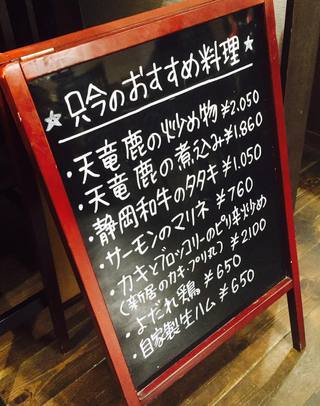 ★只今のおすすめ料理★
・天竜鹿の炒め物¥2.050
・天竜鹿の煮込み¥1.860
・静岡和牛のタタキ¥1,050
・サーモンのマリネ ¥760
・カキとブロッコリーのピリ辛炒め
(新居のカキ・プリ丸) ¥2100
・よだれ鶏 ¥650
・自家製生ハム ¥650